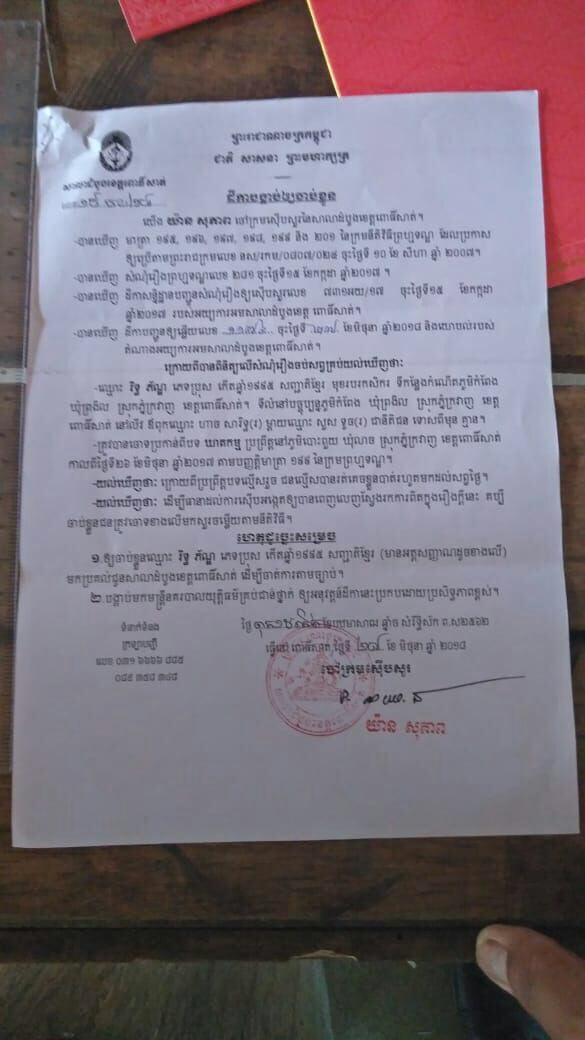 ព្រះរាជាណាចក្រកម្ពុជា
ជាតិ សាសនា ព្រះមហាក្សត្រ
សាលាដំបូងខេត្តពោធិ៍សាត់
ដីកាបង្គាប់ឲ្យចាប់ខ្លួន
យើង យ៉ាន សុភាព ចៅក្រមស៊ើបសួរនៃសាលាដំបូងខេត្តពោធិ៍សាត់។
-បានឃើញ មាត្រា ១៩៥, ១៩៦, ១៩៧, ១៩៨, ១៩៩ និង ២០១ នៃក្រមនីតិវិធីព្រហ្មទណ្ឌ ដែលប្រកាស
ឲ្យប្រើតាមព្រះរាជក្រមលេខ នស/រកម/០៨០៧/០២៤ ចុះថ្ងៃទី ១០ ខែ សីហា ឆ្នាំ ២០០៧។
-បានឃើញ សំណុំរឿងព្រហ្មទណ្ឌលេខ ២៨១ ចុះថ្ងៃទី១៥ ខែកក្កដា ឆ្នាំ២០១៧ ។
-បានឃើញ ដីកាសន្និដ្ឋានបញ្ជូនសំណុំរឿងឲ្យស៊ើបសួរលេខ ៧៣១អយ/១៧ ចុះថ្ងៃទី១៥ ខែកក្កដា
ឆ្នាំ២០១៧ របស់អយ្យការអមសាលាដំបូងខេត្ត ពោធិ៍សាត់។
-បានឃើញ ដីកាបញ្ជូនឲ្យឆ្លើយលេខ ចុះថ្ងៃទី ខែមិថុនា ឆ្នាំ២០១៨ និងយោបល់របស់
តំណាងអយ្យការអមសាលាដំបូងខេត្តពោធិ៍សាត់។
ក្រោយពីបានពិនិត្យលើសំណុំរឿងចប់សព្វគ្រប់យល់ឃើញថាៈ
-ឈ្មោះ រិទ្ធ ភ័ណ្ឌ ភេទប្រុស កើតឆ្នាំ១៩៩៥ សញ្ជាតិខ្មែរ មុខរបរកសិករ ទីកន្លែងកំណើតភូមិកំពែង
ឃុំព្រងិល ស្រុកភ្នំក្រវាញ ខេត្តពោធិ៍សាត់។ ទីលំនៅបច្ចុប្បន្នភូមិកំពែង ឃុំព្រងិល ស្រុកភ្នំក្រវាញ ខេត្ត
ពោធិ៍សាត់ នៅលីវ ឪពុកឈ្មោះ ហាច សារិទ្ធ(រ) ម្តាយឈ្មោះ សួស ទូច(រ) ជានីតិជន ទោសពីមុន គ្មាន។
-ត្រូវបានចោទប្រកាន់ពីបទ ឃាតកម្ម ប្រព្រឹត្តនៅភូមិបោះពួយ ឃុំលាច ស្រុកភ្នំក្រវាញ ខេត្តពោធិ៍សាត់
កាលពីថ្ងៃទី២៦ ខែមិថុនា ឆ្នាំ២០១៧ តាមបញ្ញត្តិមាត្រា ១៩៩ នៃក្រមព្រហ្មទណ្ឌ។
-យល់ឃើញថាៈ ក្រោយពីប្រព្រឹត្តបទល្មើសរួច ជនល្មើសបានរត់គេចខ្លួនបាត់រហូតមកដល់សព្វថ្ងៃ។
-យល់ឃើញថាៈ ដើម្បីធានាដល់ការស៊ើបអង្កេតឲ្យបានពេញលេញស្វែងរកការពិតក្នុងរឿងក្តីនេះ គប្បី
ចាប់ខ្លួនជនត្រូវចោទខាងលើមកសួរចម្លើយតាមនីតិវិធី។
ហេតុដូច្នេះសម្រេច
១.ឲ្យចាប់ខ្លួនឈ្មោះ រិទ្ធ ភ័ណ្ឌ ភេទប្រុស កើតឆ្នាំ១៩៩៥ សញ្ជាតិខ្មែរ (មានអត្តសញ្ញាណដូចខាងលើ)
មកប្រគល់ជូនសាលាដំបូងខេត្តពោធិ៍សាត់ ដើម្បីចាត់ការតាមច្បាប់។
២.បង្គាប់មកមន្ត្រីនគរបាលយុត្តិធម៌គ្រប់ជាន់ថ្នាក់ ឲ្យអនុវត្តន៍ដីកានេះប្រកបដោយប្រសិទ្ធភាពខ្ពស់។
ថ្ងៃ ឆ្នាំច សំរឹទ្ធិស័ក ព.ស២៥៦២
ធ្វើនៅ ពោធិ៍សាត់,ថ្ងៃទី ខែ មិថុនា ឆ្នាំ ២០១៨
ចៅក្រមស៊ើបសួរ
ទំនាក់ទំនង
ក្រឡាបញ្ជី
លេខ ០៣១ ៦៦៦៦ ៨៨៥
០៨៩ ៣៥៨ ៣៤៨
យ៉ាន សុភាព